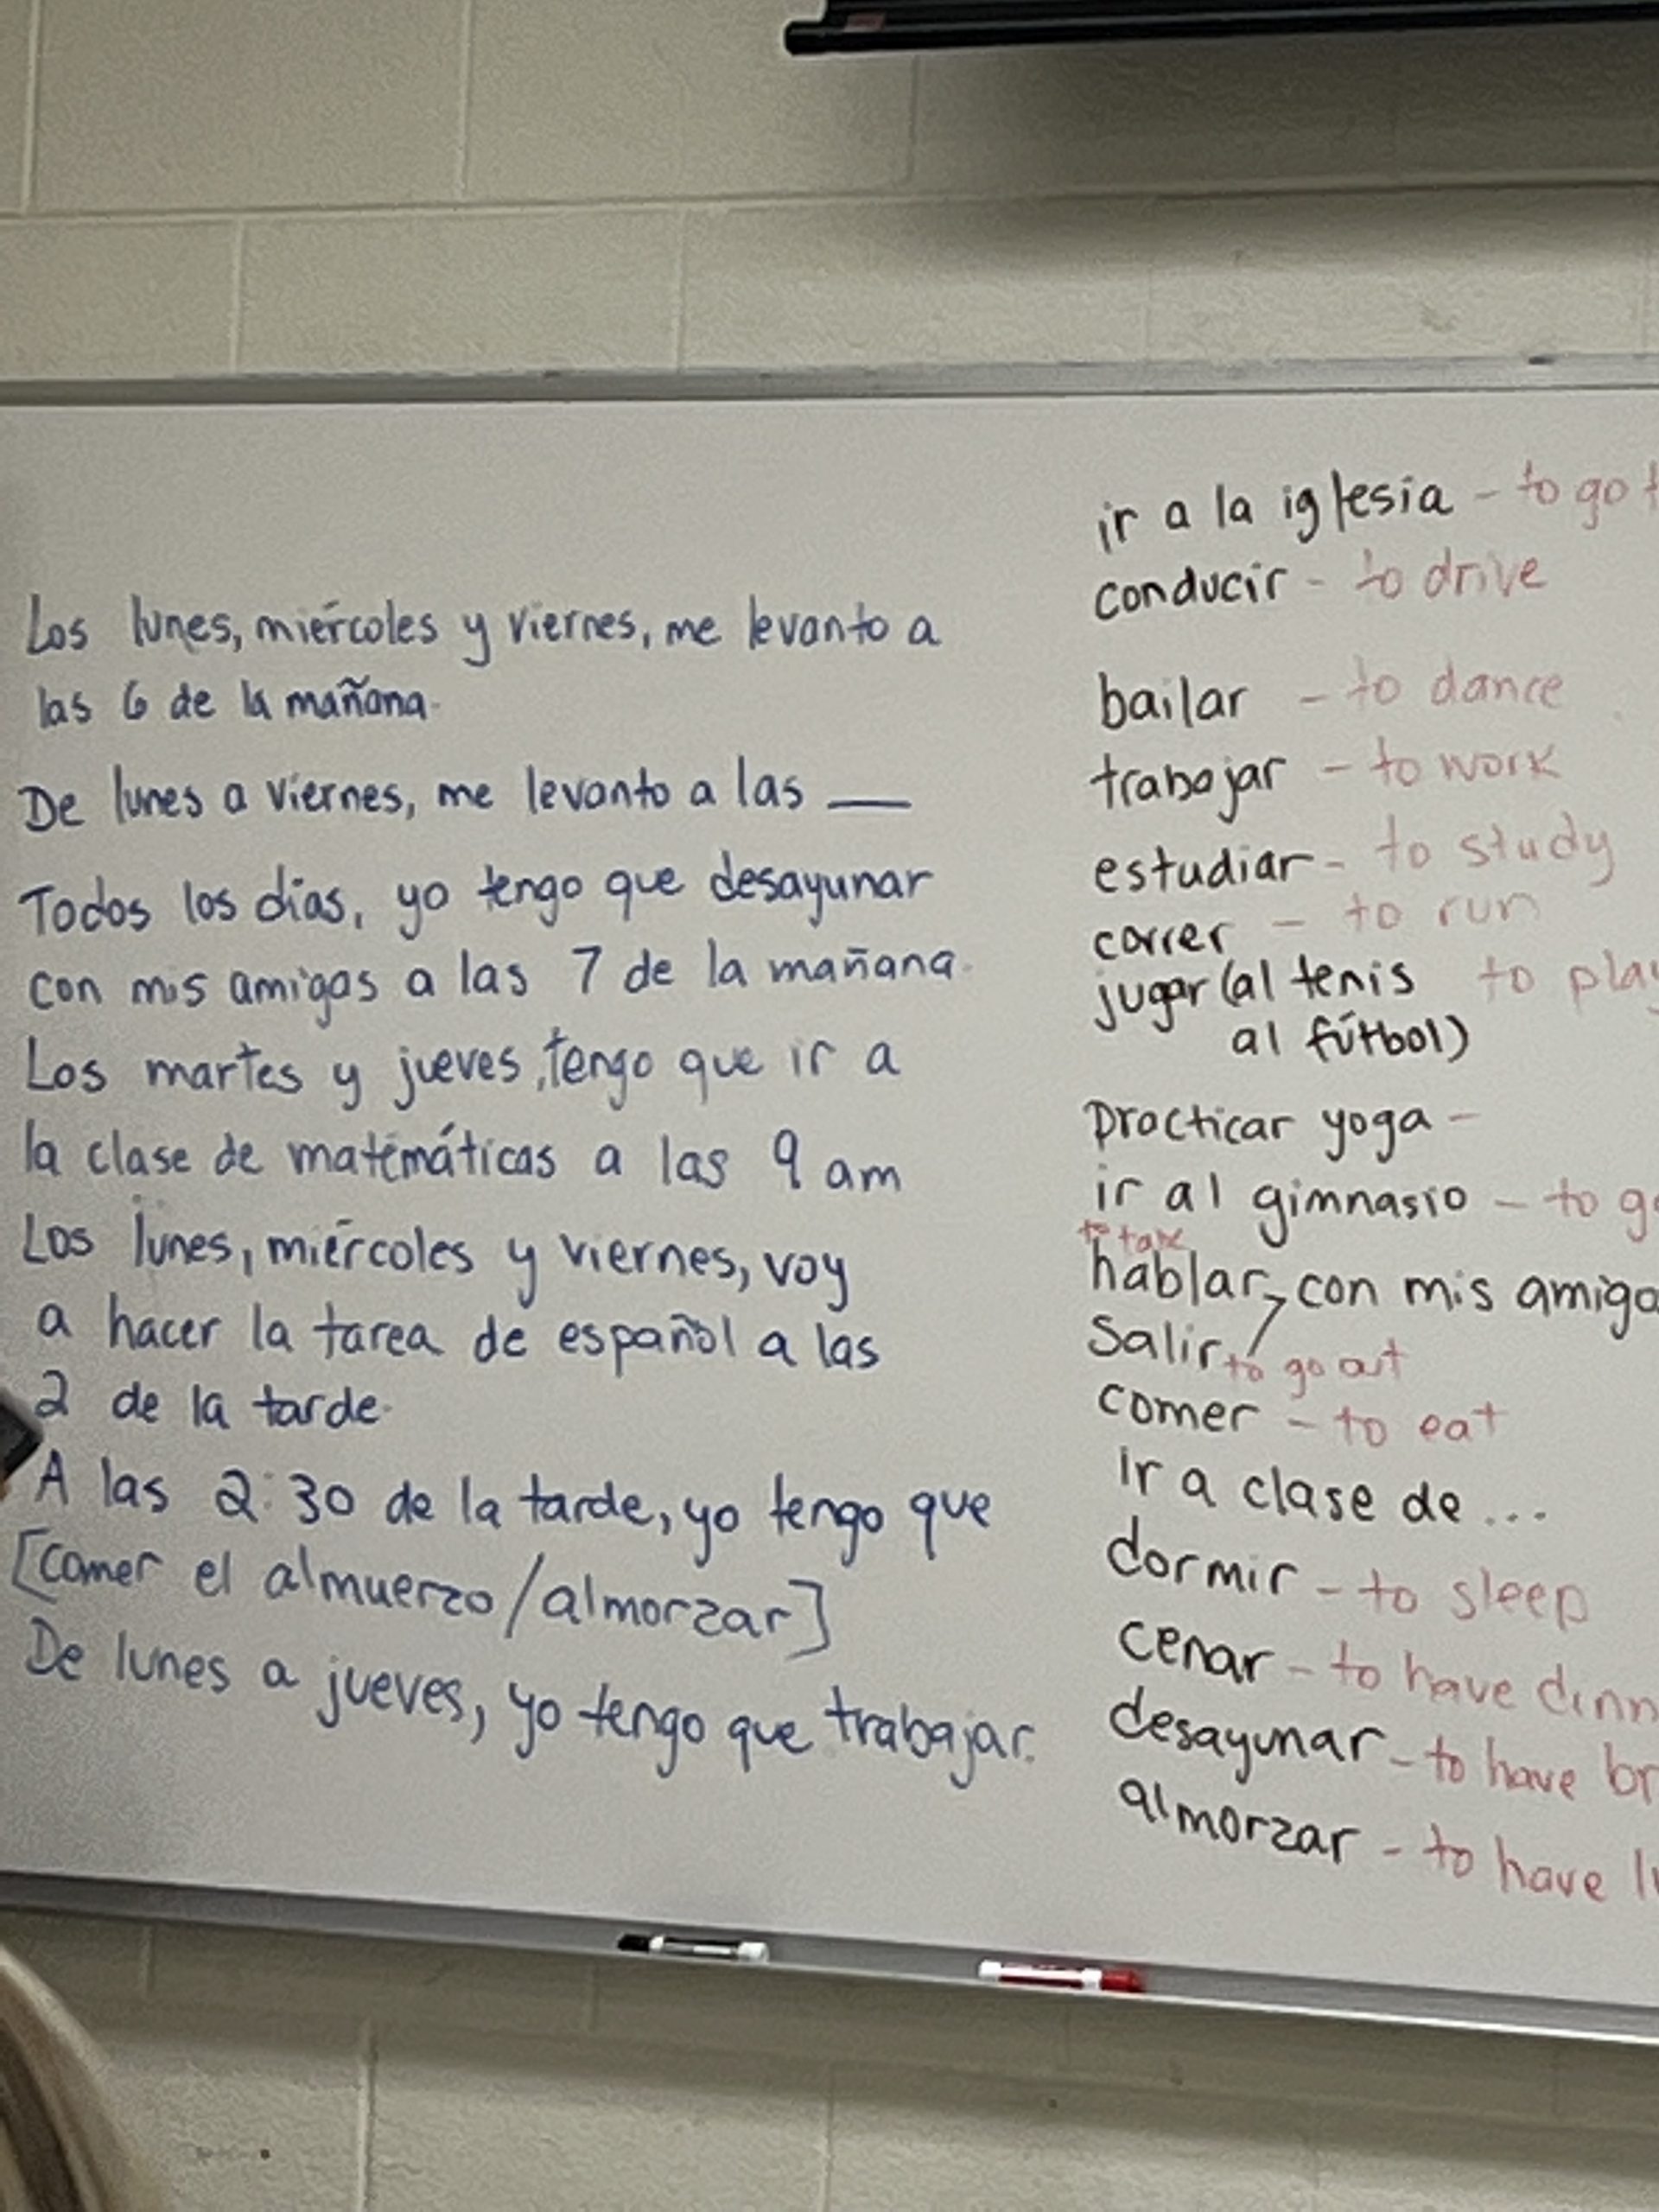 Los lunes, miércoles y viernes, me levanto a
las 6 de la mañana.
De lunes a viernes, me levanto a las __
Todos los días, yo tengo que desayunar
con mis amigos a las 7 de la mañana.
Los martes y jueves, tengo que ir a
la clase de matemáticas a las 9 am
Los lunes, miércoles y viernes, voy
a hacer la tarea de español a las
2 de la tarde.
A las 2:30 de la tarde, yo tengo que
[comer el almuerzo/almorzar]
De lunes a jueves, yo tengo que trabajar.
ir a la iglesia - to go
conducir - to drive
bailar - to dance
trabajar - to work
estudiar - to study
correr - to run
jugar (al tenis to play
al fútbol)
practicar yoga -
ir al gimnasio - to
to talk
hablar, con mis
Salir to go out
comer - to eat
Ir a clase de ...
dormir - to sleep
cenar - to have
desayunar - to have
almorzar - to have